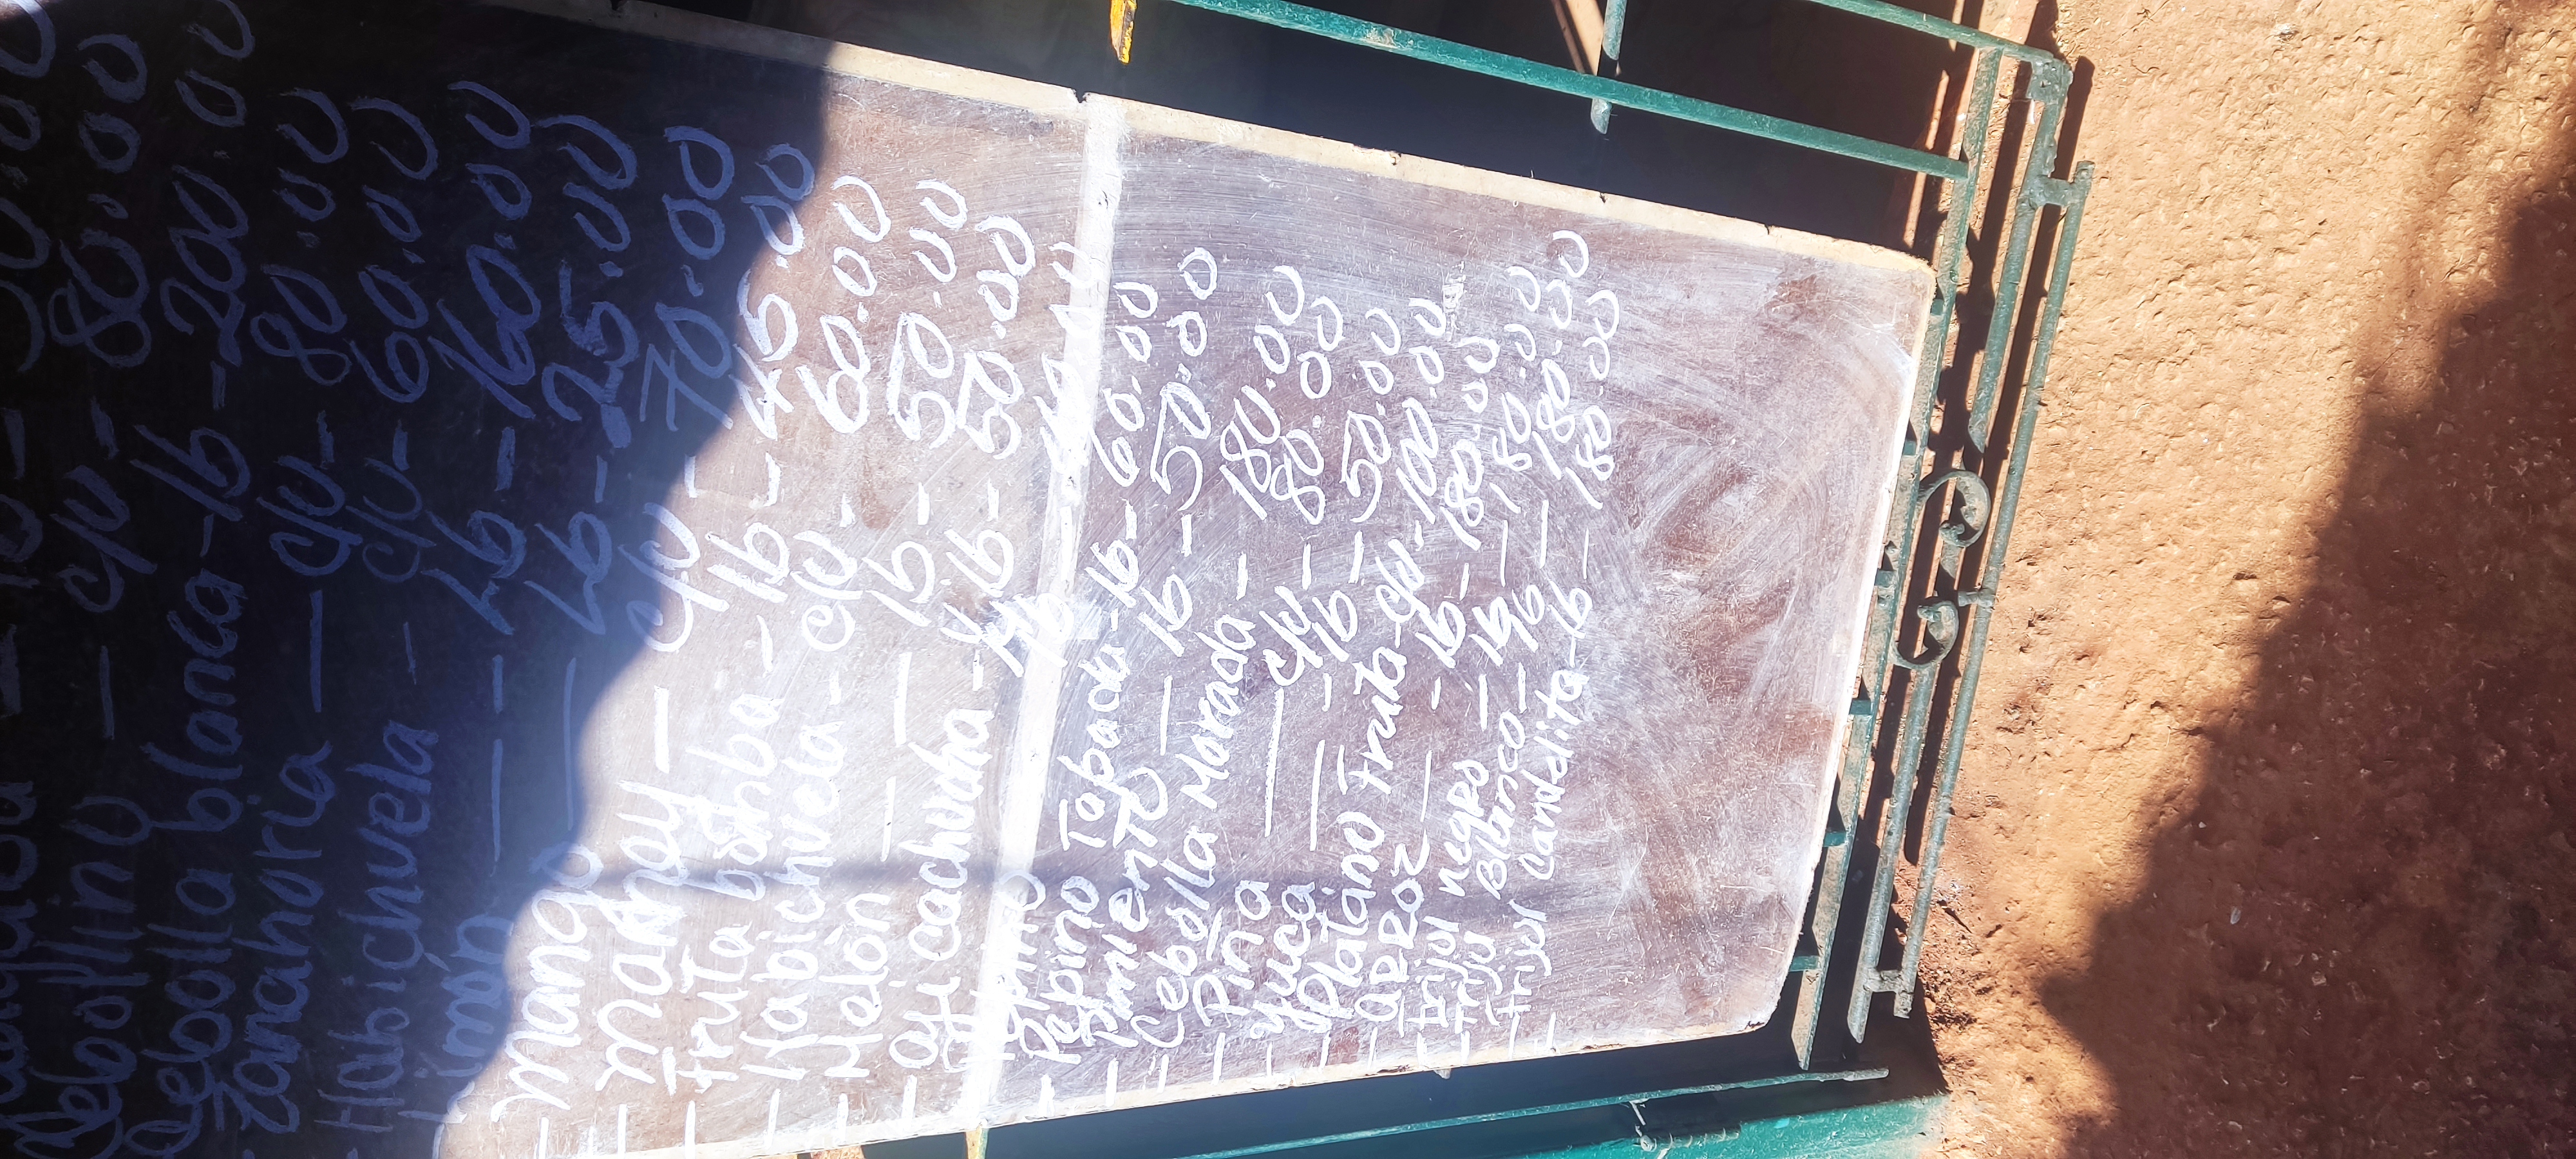 lb - 50.00
Cebollino — c/u - 80.00
Cebolla blanca - lb - 200.00
- Zanahoria — c/u - 80.00
- Habichuela - c/u - 60.00
Limón — - Lb - 160.00
- Mango — Lb - 25.00
- Mamey — c/u - 70.00
- Fruta bomba - lb - 45.00
- Habichuela - c/u - 60.00
- Melòn — — lb - 50.00
- aji cachucha - lb - 50.00
Pepino lb
- Pepino Tapada - lb - 60.00
- Pmiento — lb - 50.00
- Cebolla Morada - 180.00
- Piña — c/u - 80.00
- Yuca — - lb - 50.00
- Platano Fruta - c/u - 100.00
- aRRoz — - lb - 180.00
- Frijol negro - lb - 180.00
- Friju Blanco - lb - 180.00
- Frijol Candelita - lb - 180.00